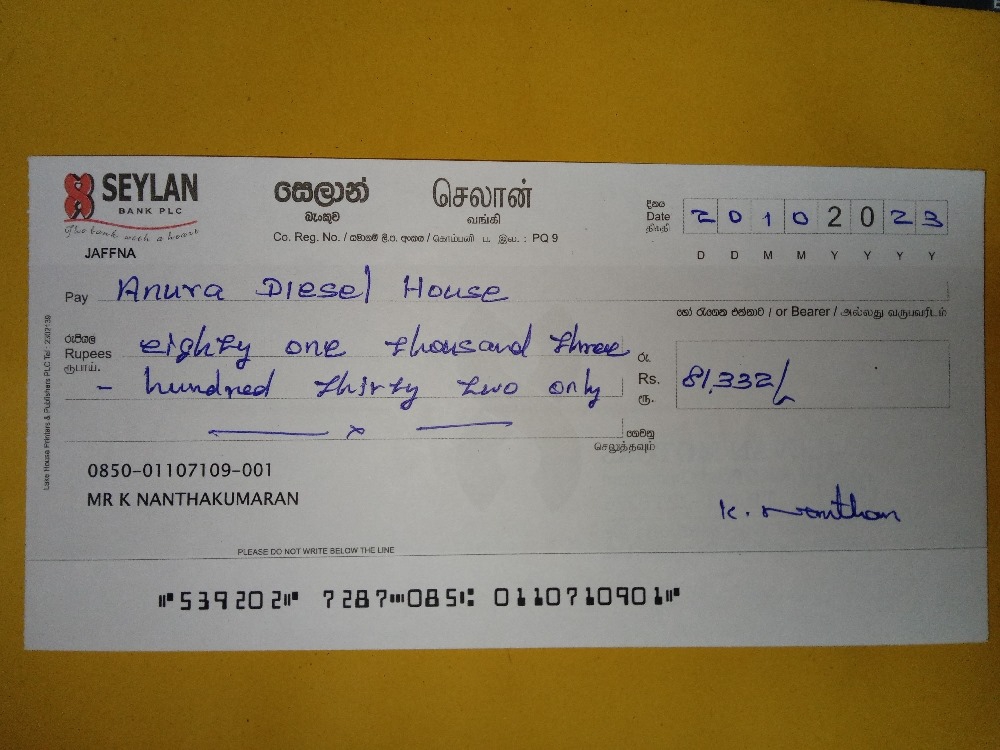 SEYLAN
BANK PLC
The bank with a heart
JAFFNA
සෙලාන්
බැංකුව
செலான்
வங்கி
Co. Reg. No. / සමාගම් ලි.ප. අංකය / கொம்பனி ப. இல. : PQ 9
දිනය
Date
திகதி
2 0 1 0 2 0 2 3
D D M M Y Y Y Y
Pay Anura Diesel House
හෝ රැගෙන එන්නාට / or Bearer / அல்லது வருபவரிடம்
රුපියල්
Rupees
ரூபாய்.
eighty one thousand three
- hundred thirty two only
x
රු.
Rs.
ரூ.
81,332/
ගෙවනු
செலுத்தவும்
0850-01107109-001
MR K NANTHAKUMARAN
K. Nanthan
PLEASE DO NOT WRITE BELOW THE LINE
Lake House Printers & Publishers PLC Tel : 2302139
⑈539202⑈ 7287⑉085⑆ 0110710901⑈